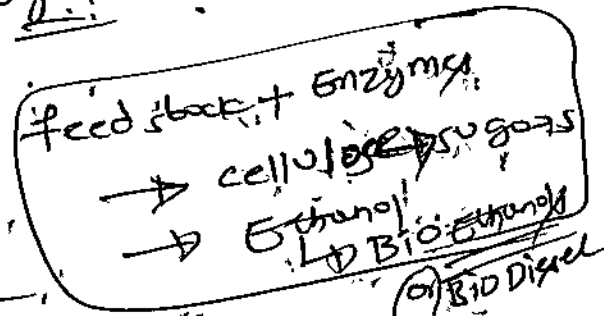 feedstock + Enzymes
→ cellulose → sugars
→ Ethanol
↳ Bio-Ethanol
(or) BIO Diesel